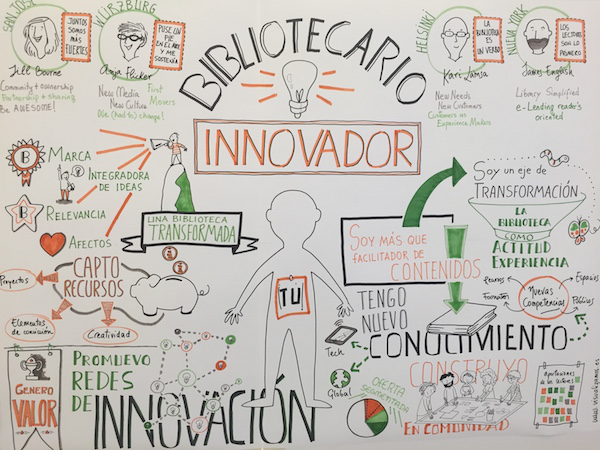 SAN JOSÉ
JUNTOS
SOMOS
MÁS
FUERTES
Jill Bourne
Community + ownership
Partnership + sharing
Be AWESOME!
WÜRZBURG
PUSE UN
PIE EN
EL AIRE
Y ME
SOSTENÍA
Anja Flicker
New Media
New Culture
We (had to) change!
First
Movers
BIBLIOTECARIO
INNOVADOR
HELSINKI
LA
BIBLIOTECA
ES UN
VERBO
Kari Jämsä
New Needs
New Customers
Customers as
Experience Makers
NUEVA YORK
LOS
LECTORES
SON LO
PRIMERO
James English
Library Simplified
e-Lending reader's
oriented
B MARCA
INTEGRADORA
DE IDEAS
B RELEVANCIA
AFECTOS
UNA BIBLIOTECA
TRANSFORMADA
CAPTO
RECURSOS
Proyectos
Elementos
de conexión
Creatividad
GENERO
VALOR
PROMUEVO
REDES
DE
INNOVACIÓN
TU
SOY MÁS QUE
FACILITADOR DE
CONTENIDOS
SOY UN EJE DE
TRANSFORMACIÓN
LA
BIBLIOTECA
COMO
ACTITUD
EXPERIENCIA
Nuevas
Competencias
Espacios
Públicos
TENGO
NUEVO
CONOCIMIENTO
Tech
Global
OFERTA
CONSTRUYO
EN COMUNIDAD
Aportaciones
de los talleres
www.visualizamos.es